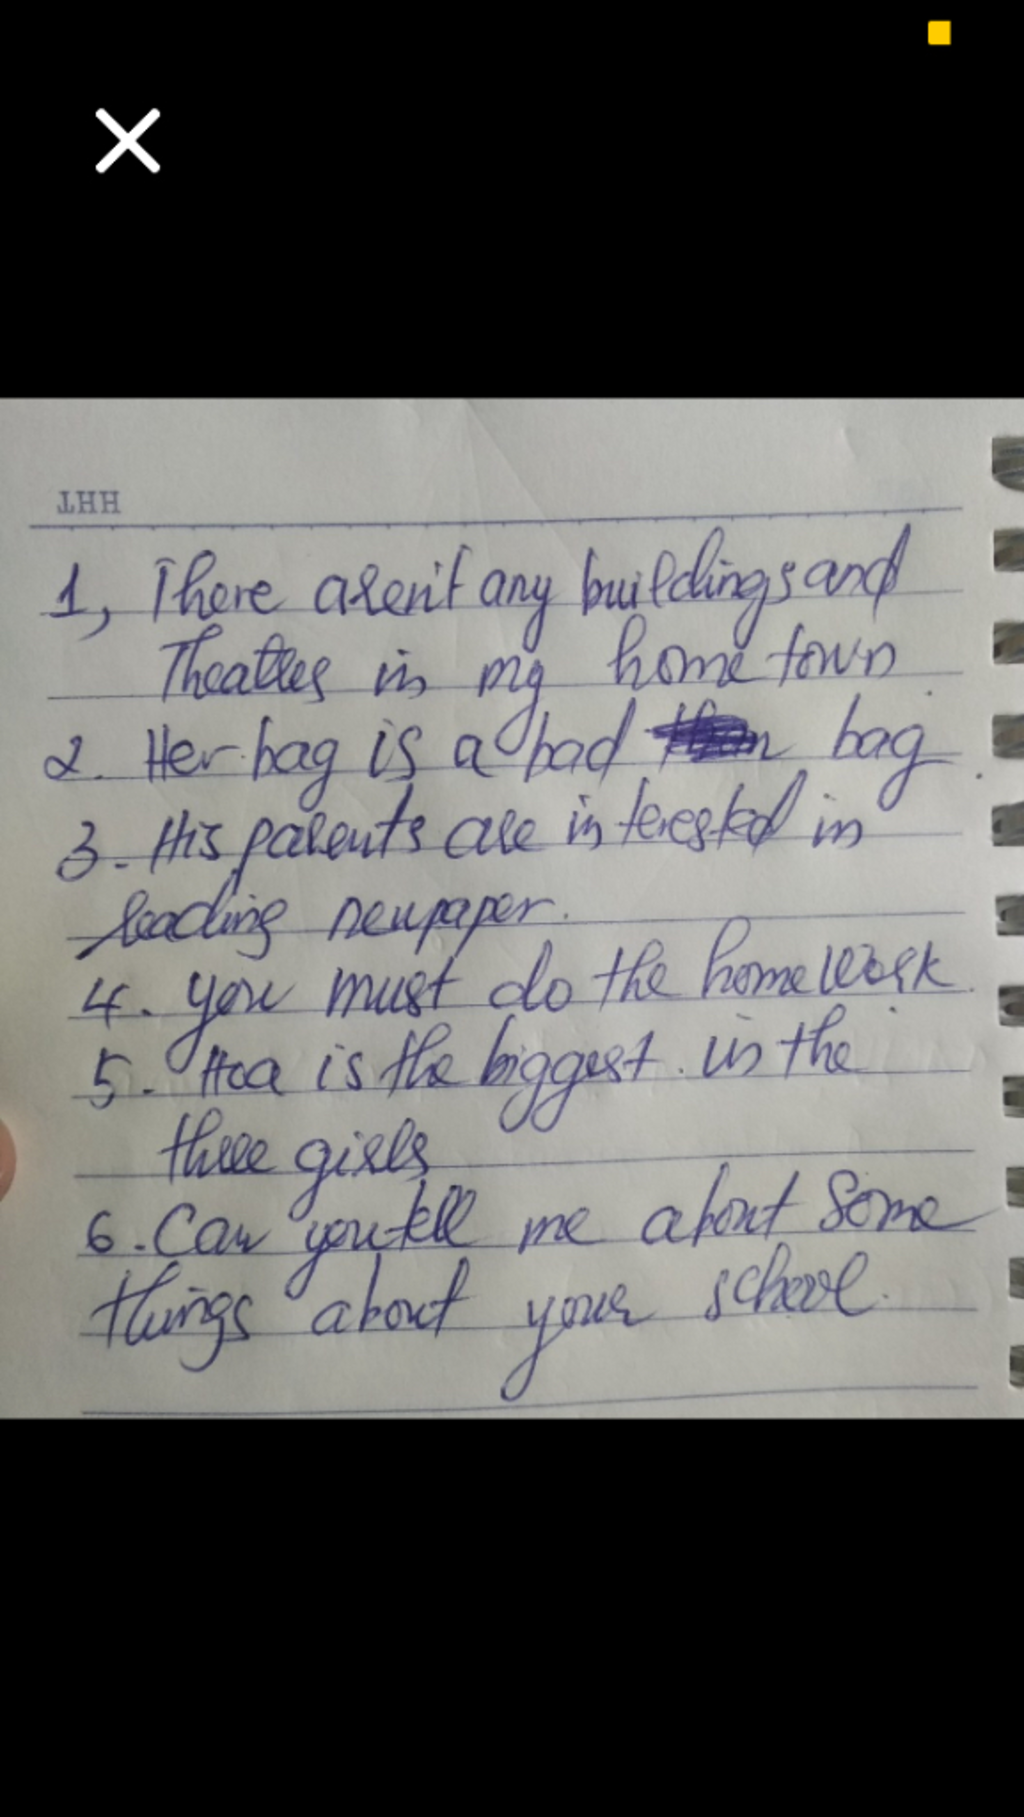 THH
1, There aren't any buildings and
Theatres in my home town
2. Her bag is a bad bag
3. His parents are interested in
reading newpaper.
4. you must do the homework.
5. Hoa is the biggest in the
three girls
6. Can you tell me about some
things about your school.